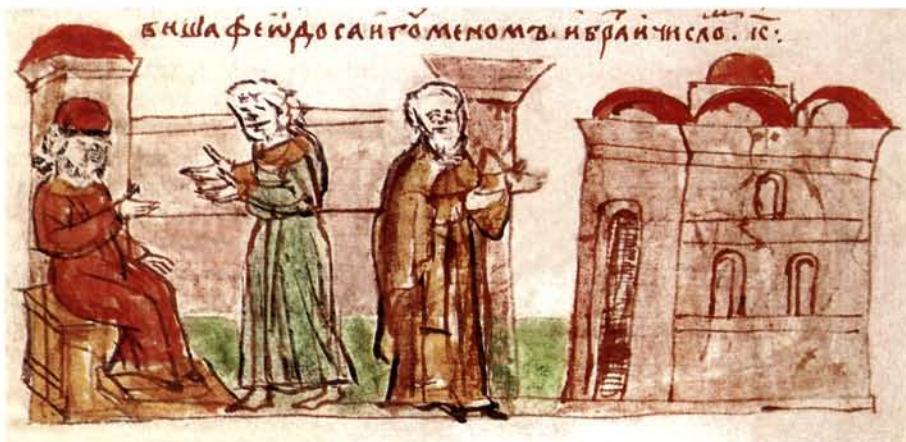 виша феѡдосаигоуменомъ. ибратиичисло. к҃: